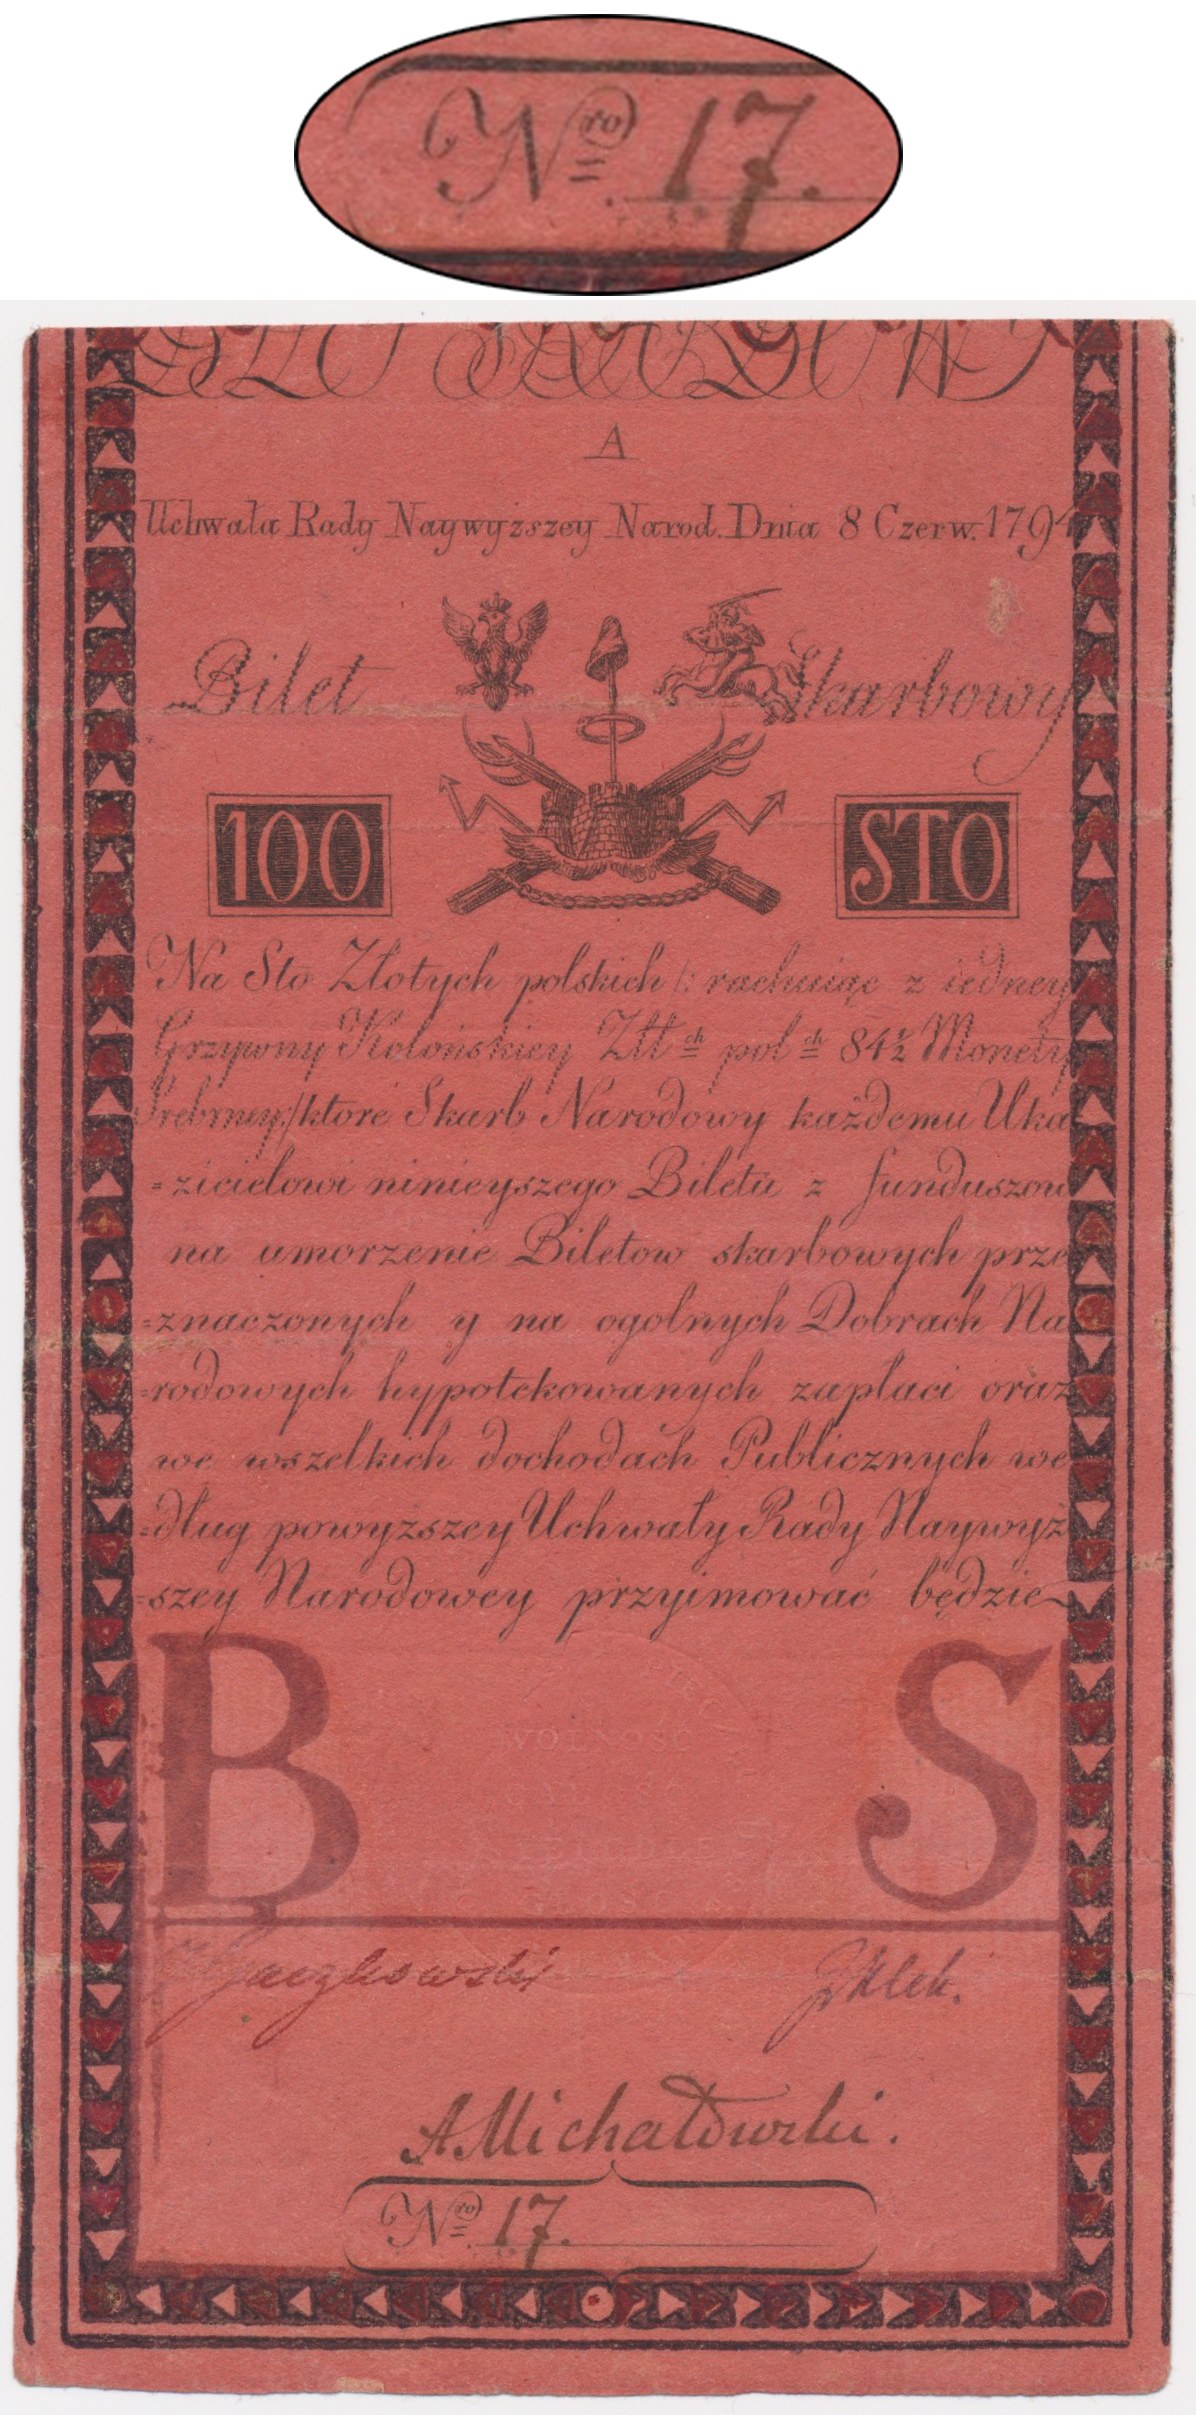 Nro 17.
A
Uchwała Rady Naywyższey Narod. Dnia 8 Czerw. 1794
Bilet Skarbowy
100 STO
Na Sto Złotych polskich /: rachuiąc z iedney
Grzywny Kolońskiey Złł ch pol ch 84½ Monety
Srebrney:/ ktore Skarb Narodowy każdemu Uka
=zicielowi ninieyszego Biletu z funduszow
na umorzenie Biletow skarbowych prze
=znaczonych y na ogolnych Dobrach Na
=rodowych hypotekowanych zapłaci oraz
we wszelkich dochodach Publicznych we
=dług powyższey Uchwały Rady Naywyż
=szey Narodowey przyimować będzie
B S
WOLNOSC
A Michałowski.
Nro 17.